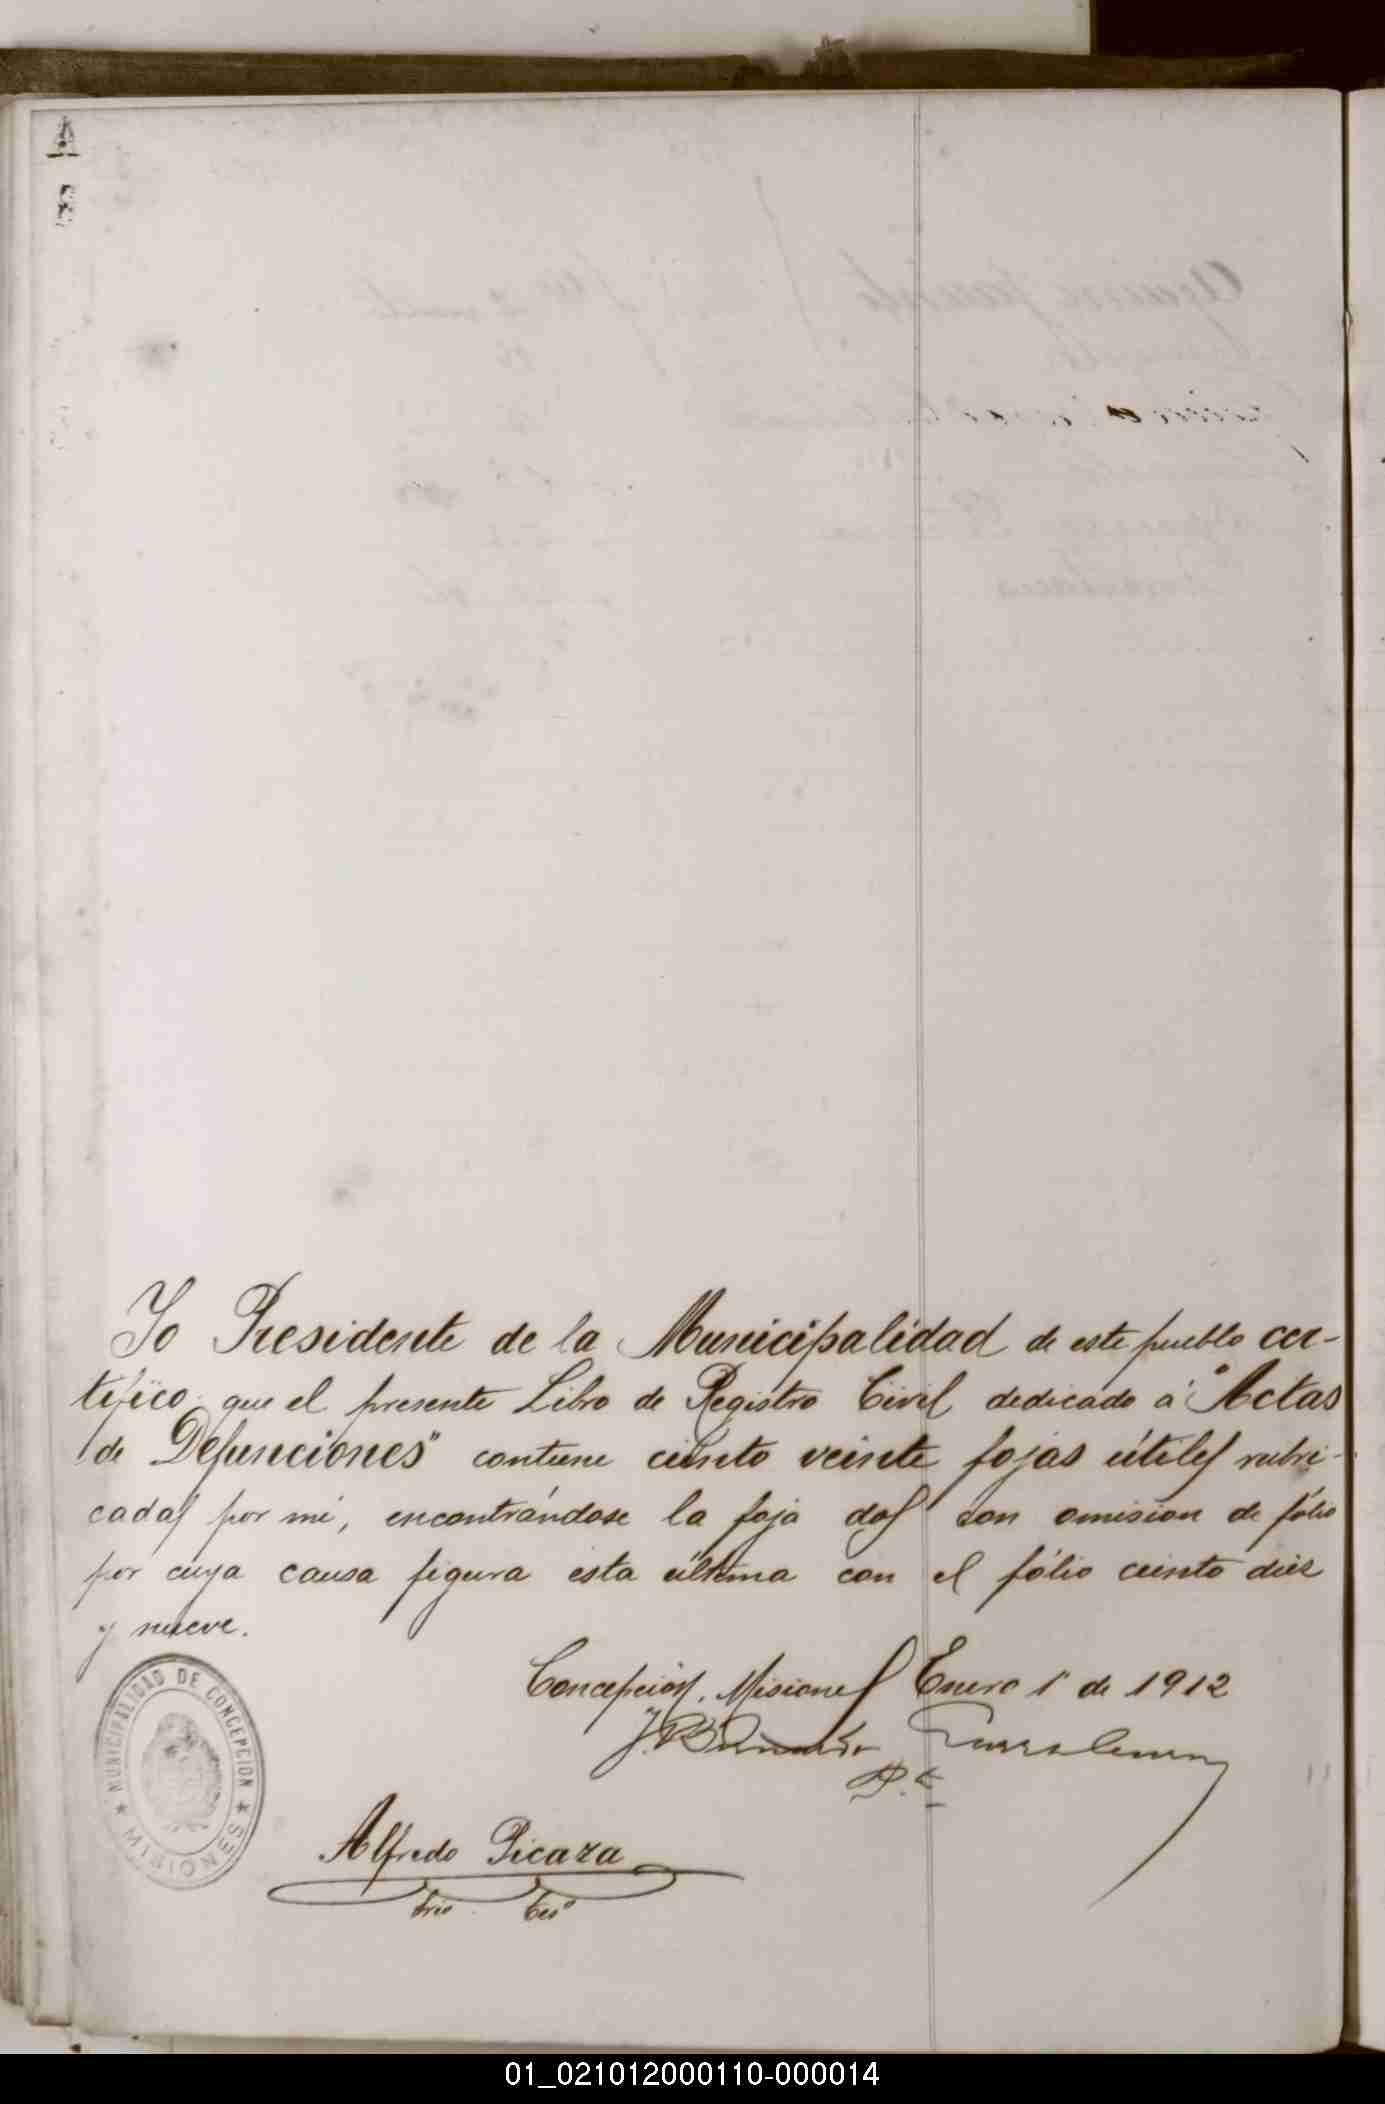 A
Yo Presidente de la Municipalidad de este pueblo cer-
tifico que el presente Libro de Registro Civil dedicado á "Actas
de Defunciones" contiene ciento veinte fojas útiles rubri-
cadas por mi, encontrándose la foja dos con omision de fólio
por cuya causa figura esta última con el fólio ciento diez
y nueve.
Concepción, Misiones Enero 1º de 1912
J. B
P.te
MUNICIPALIDAD DE CONCEPCION
★ MISIONES ★
Alfredo Picaza
Srio Teso
01_021012000110-000014